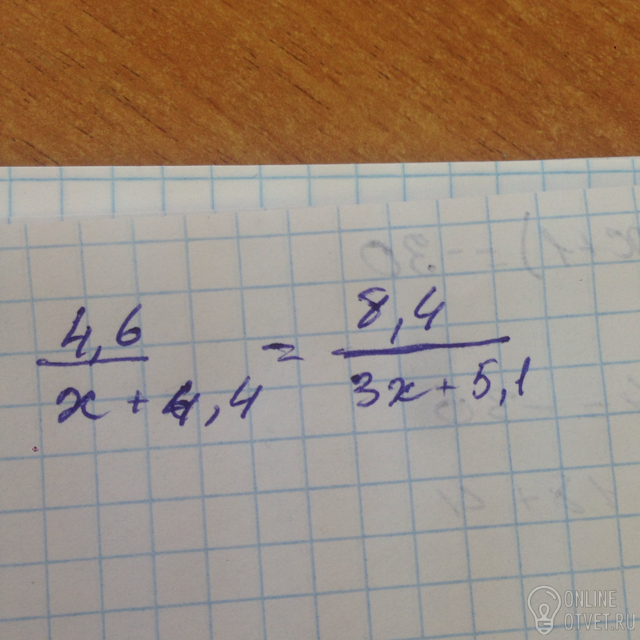 4,6 / x + 4,4 = 8,4 / 3x + 5,1
ONLINE
OTVET.RU